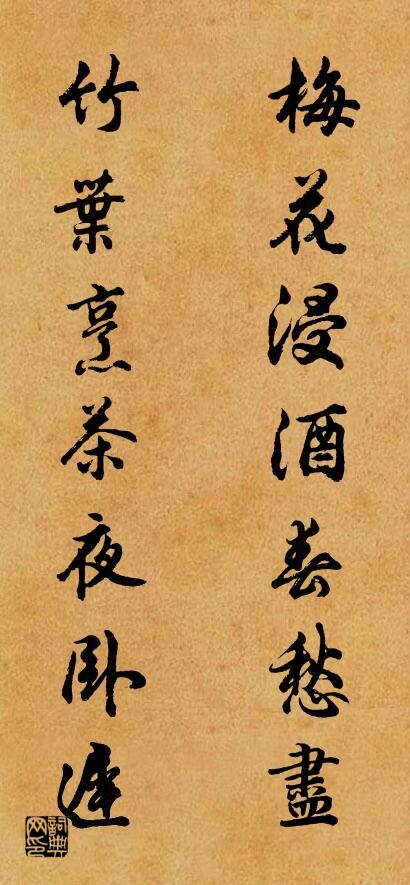 梅花浸酒春愁盡
竹葉烹茶夜卧遲
詞典网印